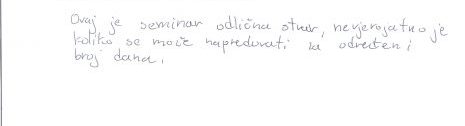 Ovaj je seminar odlična stvar, nevjerojatno je
koliko se može napredovati za određeni
broj dana.